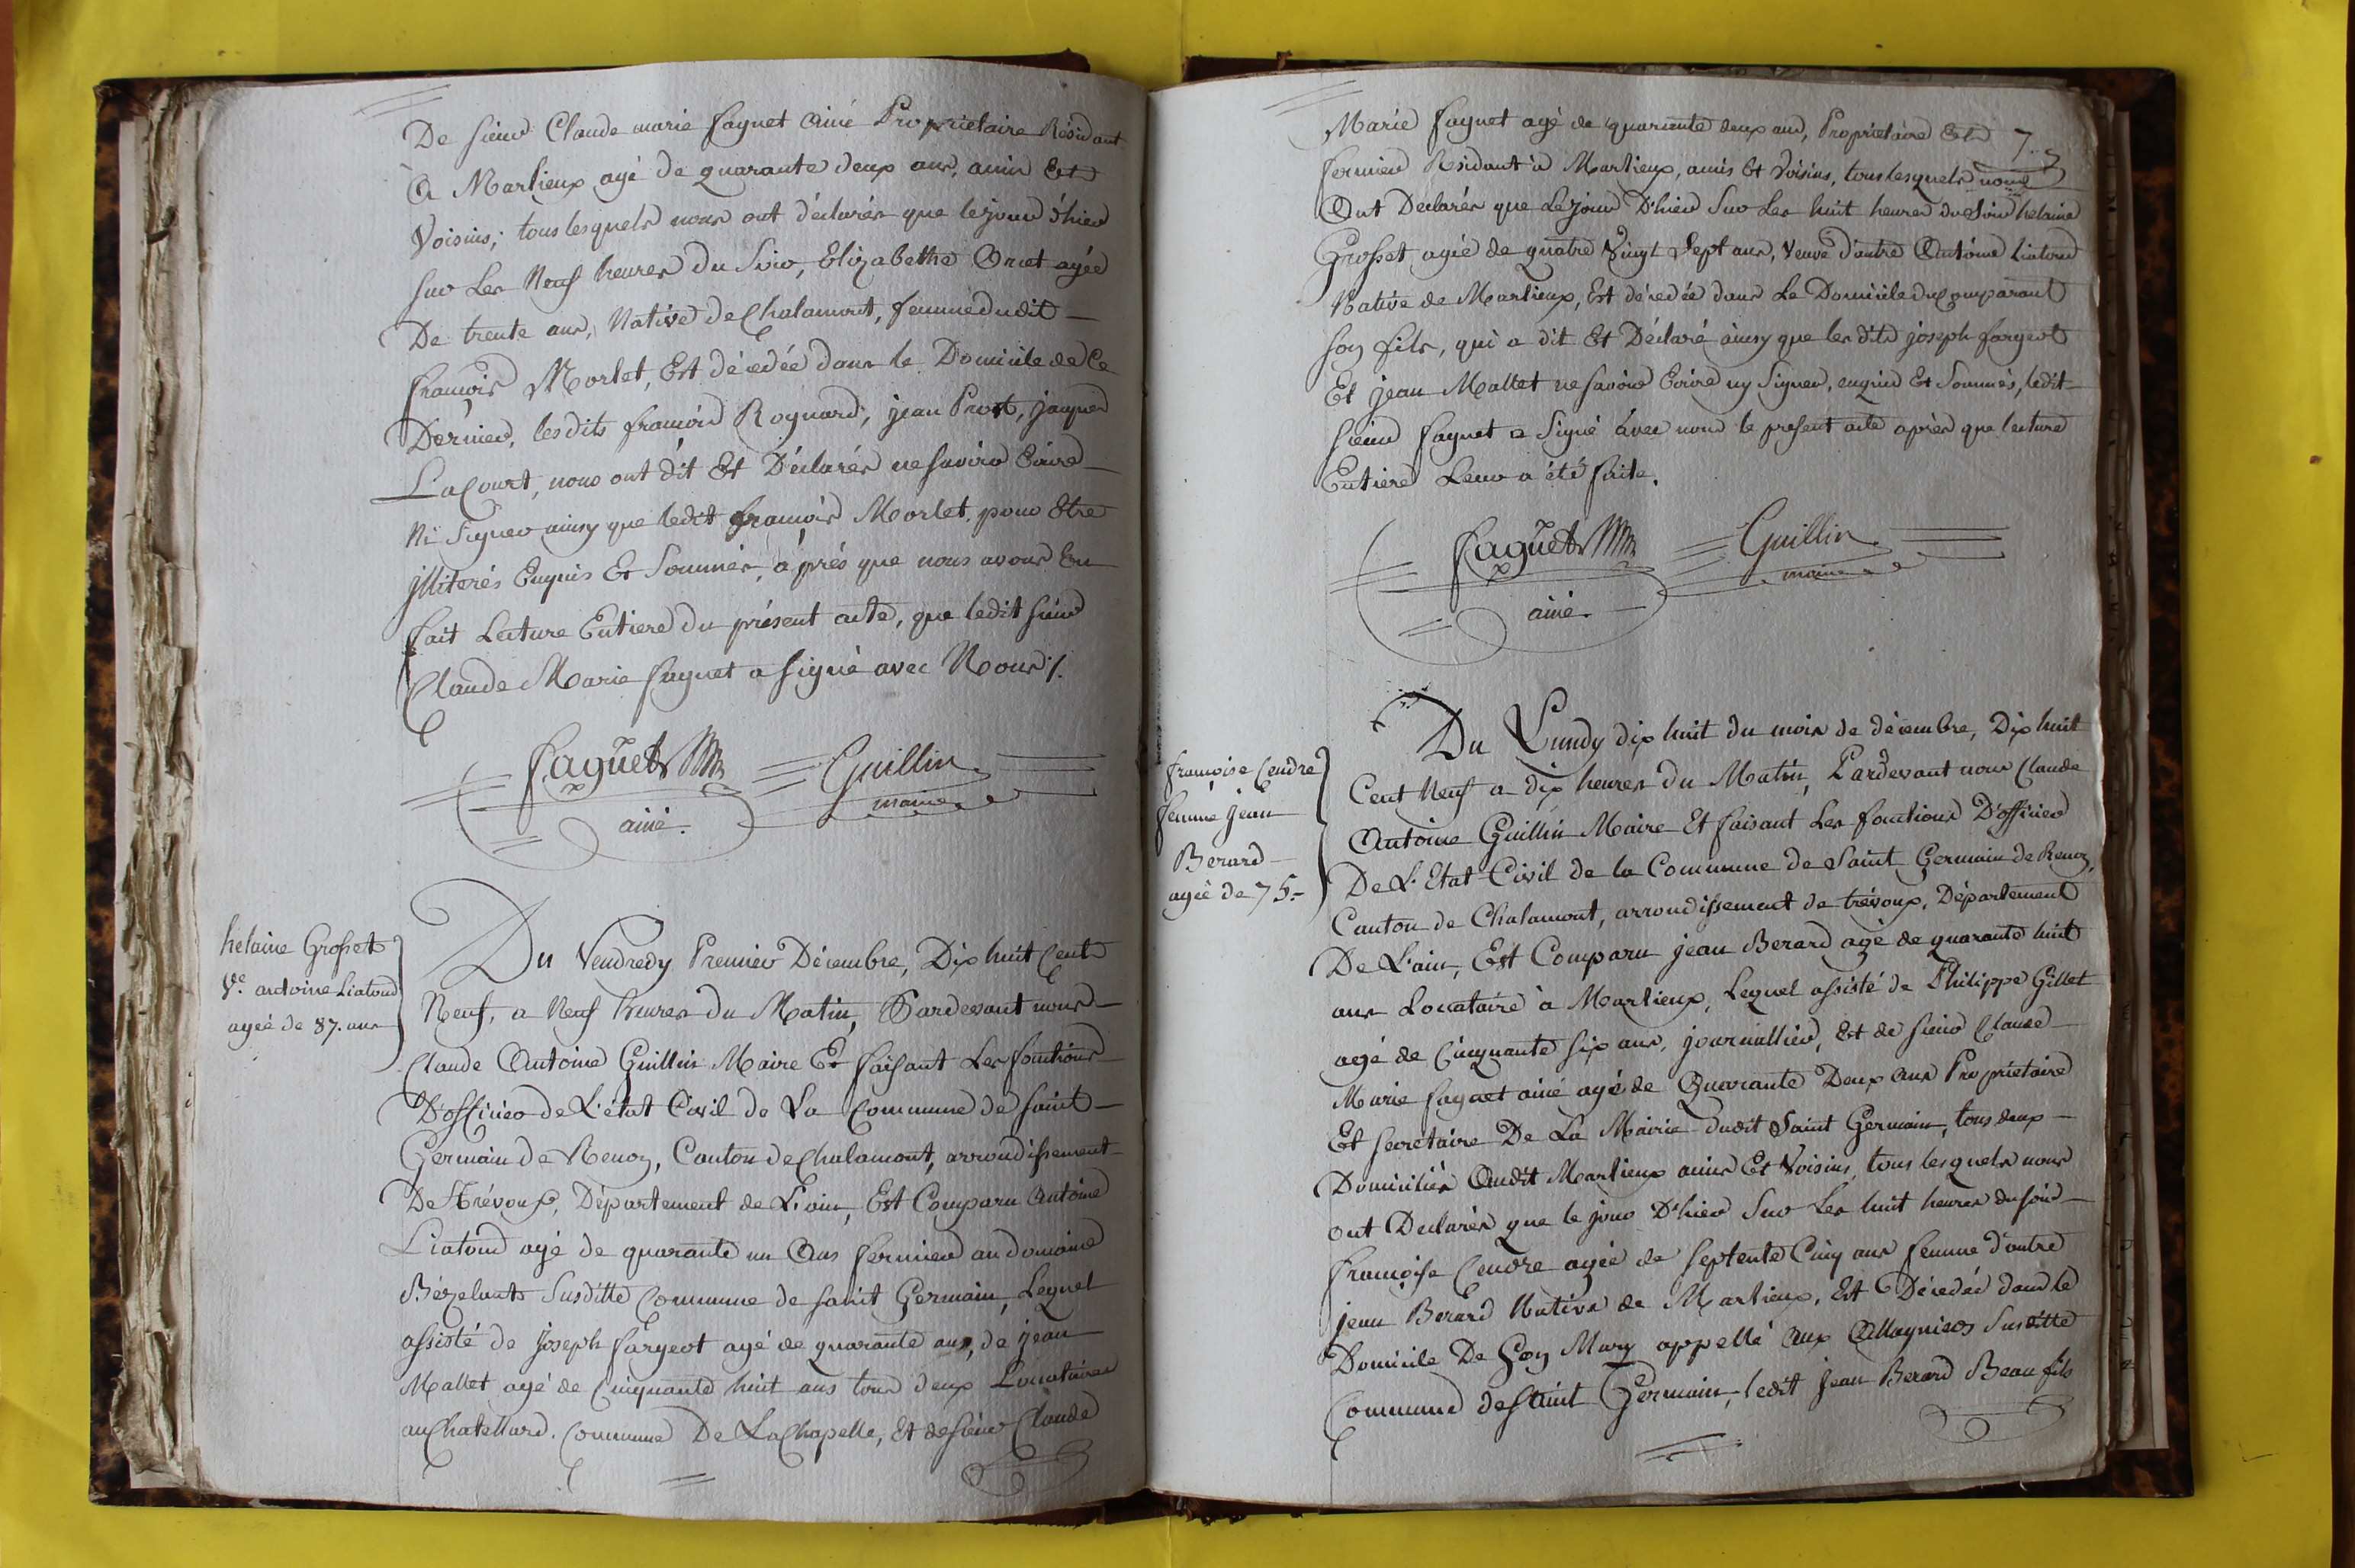 De sieur Claude marie faguet ainé Proprietaire Résidant
A Marlieux agé de quarante deux ans, amis Et
Voisins; tous lesquels nous ont déclarés que lejour d'hier
sur Les Neuf heures du Soir, Elizabethe Oriet agée
De trente ans, Native de Chalamont, femme dudit
françois Morlet, Est décedée dans le Domicile de Ce
Dernier, lesdits françois Rognard, jean Prost, jaques
LaCourt, nous ont dit Et Déclarés ne savoir Ecrire
Ni Signer ainsy que ledit françois Morlet pour Etre
jlliterés Enquis Et Sommés, après que nous avons Eu
fait Lecture Entiere du présent acte, que ledit sieur
Claude Marie faguet a signé avec Nous ./.
faguet Guillin
ainé maire
helaine Grosset
Ve. antoine Liatoud
agée de 87. ans
Du Vendredy Premier Décembre, Dix huit Cent
Neuf, a Neuf heures du Matin, Pardevant nous
Claude Antoine Guillin Maire Et faisant Les fonctions
D'officier de L'état Civil de La Commune de saint
Germain de Renon, Canton de Chalamont, arrondissement
De Trévoux, Département de L'ain, Est Comparu Antoine
Liatoud agé de quarante un Ans fermier au domaine
Susditte Commune de saint Germain, Lequel
assisté de joseph fargeot agé de quarante ans, de jean
Mallet agé de Cinquante huit ans tous deux Locataires
au Chatellard. Commune De LaChapelle, Et de sieur Claude
Marie faguet agé de quarante deux ans, Proprietaire Et 7.
fermier Résidant à Marlieux, amis Et Voisins, tous lesquels nous
Ont Déclarés que Lejour D'hier Sur Les huit heures du Soir helaine
Grosset agée de quatre Vingt Sept ans, Veuve d'autre Antoine Liatoud
Native de Marlieux, Est décedée dans Le Domicile du Comparant
son fils, qui a dit Et Déclaré ainsy que les dits joseph fargeot
Et jean Mallet ne savoir Ecrire ny Signer, enquis Et Sommés, ledit
sieur faguet a Signé avec nous le present acte après que lecture
Entiere Leur a été faite.
faguet Guillin
ainé maire
françoise Cendre
femme jean
Berard
agée de 75.
Du Lundy dix huit du mois de décembre, Dix huit
Cent Neuf a dix heures du Matin, Pardevant nous Claude
Antoine Guillin Maire Et faisant Les fonctions D'officier
De L'Etat Civil de la Commune de Saint Germain de Renon,
Canton de Chalamont, arrondissement de trévoux, Département
De L'ain, Est Comparu jean Berard agé de quarante huit
ans Locataire à Marlieux, Lequel assisté de Philippe Gillet
agé de Cinquante six ans, journallier, Et de sieur Claude
Marie faguet ainé agé de Quarante Deux ans Proprietaire
Et secretaire De La Mairie dudit Saint Germain, tous deux
Domiciliés Audit Marlieux amis Et Voisins, tous lesquels nous
ont Declarés que le jour D'hier Sur Les huit heures du soir
françoise Cendre agée de septente Cinq ans femme d'autre
jean Berard Native de Marlieux, Est Décedée dans le
Domicile De Son Mary appellé aux Susditte
Commune de Saint Germain, ledit jean Berard Beau fils